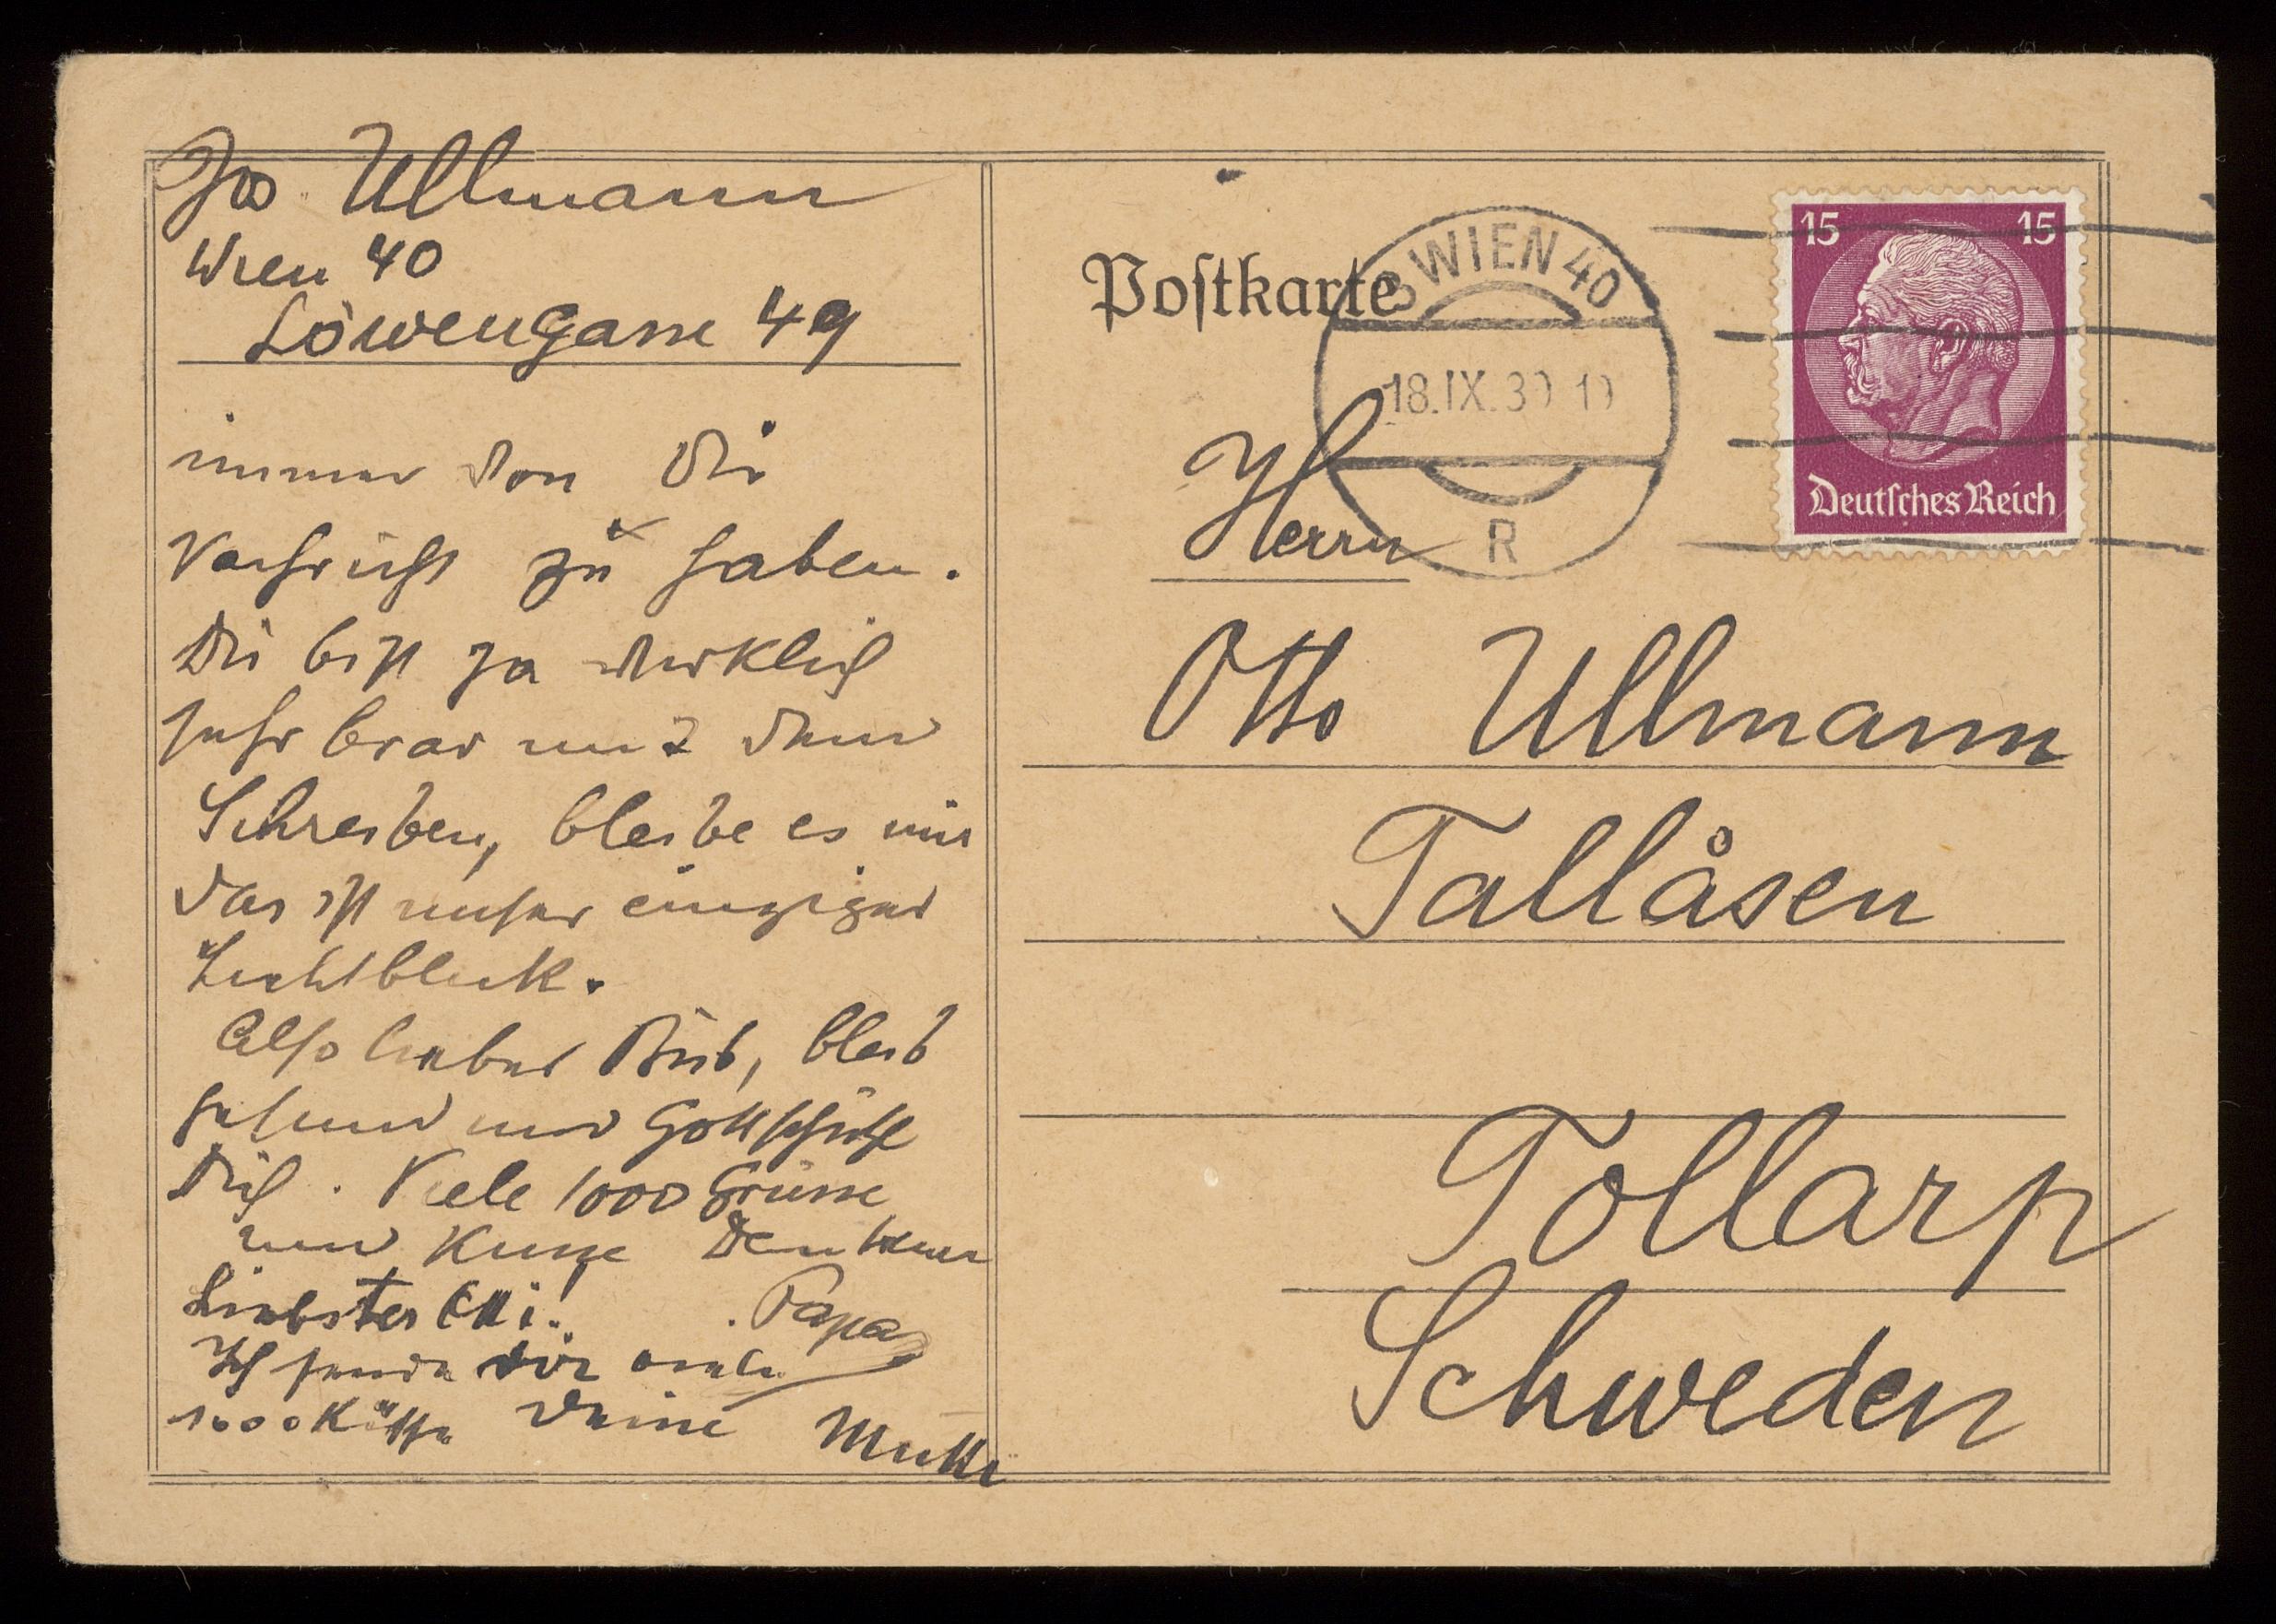 Jos Ullmann
Wien 40
Löwengasse 49
immer von Dir
Nachricht zu haben.
Du bist ja wirklich
sehr brav mit dem
Schreiben, bleibe es nur
das ist unser einziger
Lichtblick.
Also lieber Bub, bleib
gesund und Gott schütze
Dich. Viele 1000 Grüsse
und Küsse Dein treuer
Papa
Liebster Otti!
Ich sende dir viele
1000 Küsse Deine Mutti
Postkarte
WIEN 40
18.IX.39 19
R
15 15
Deutsches Reich
Herrn
Otto Ullmann
Tallåsen
Tollarp
Schweden